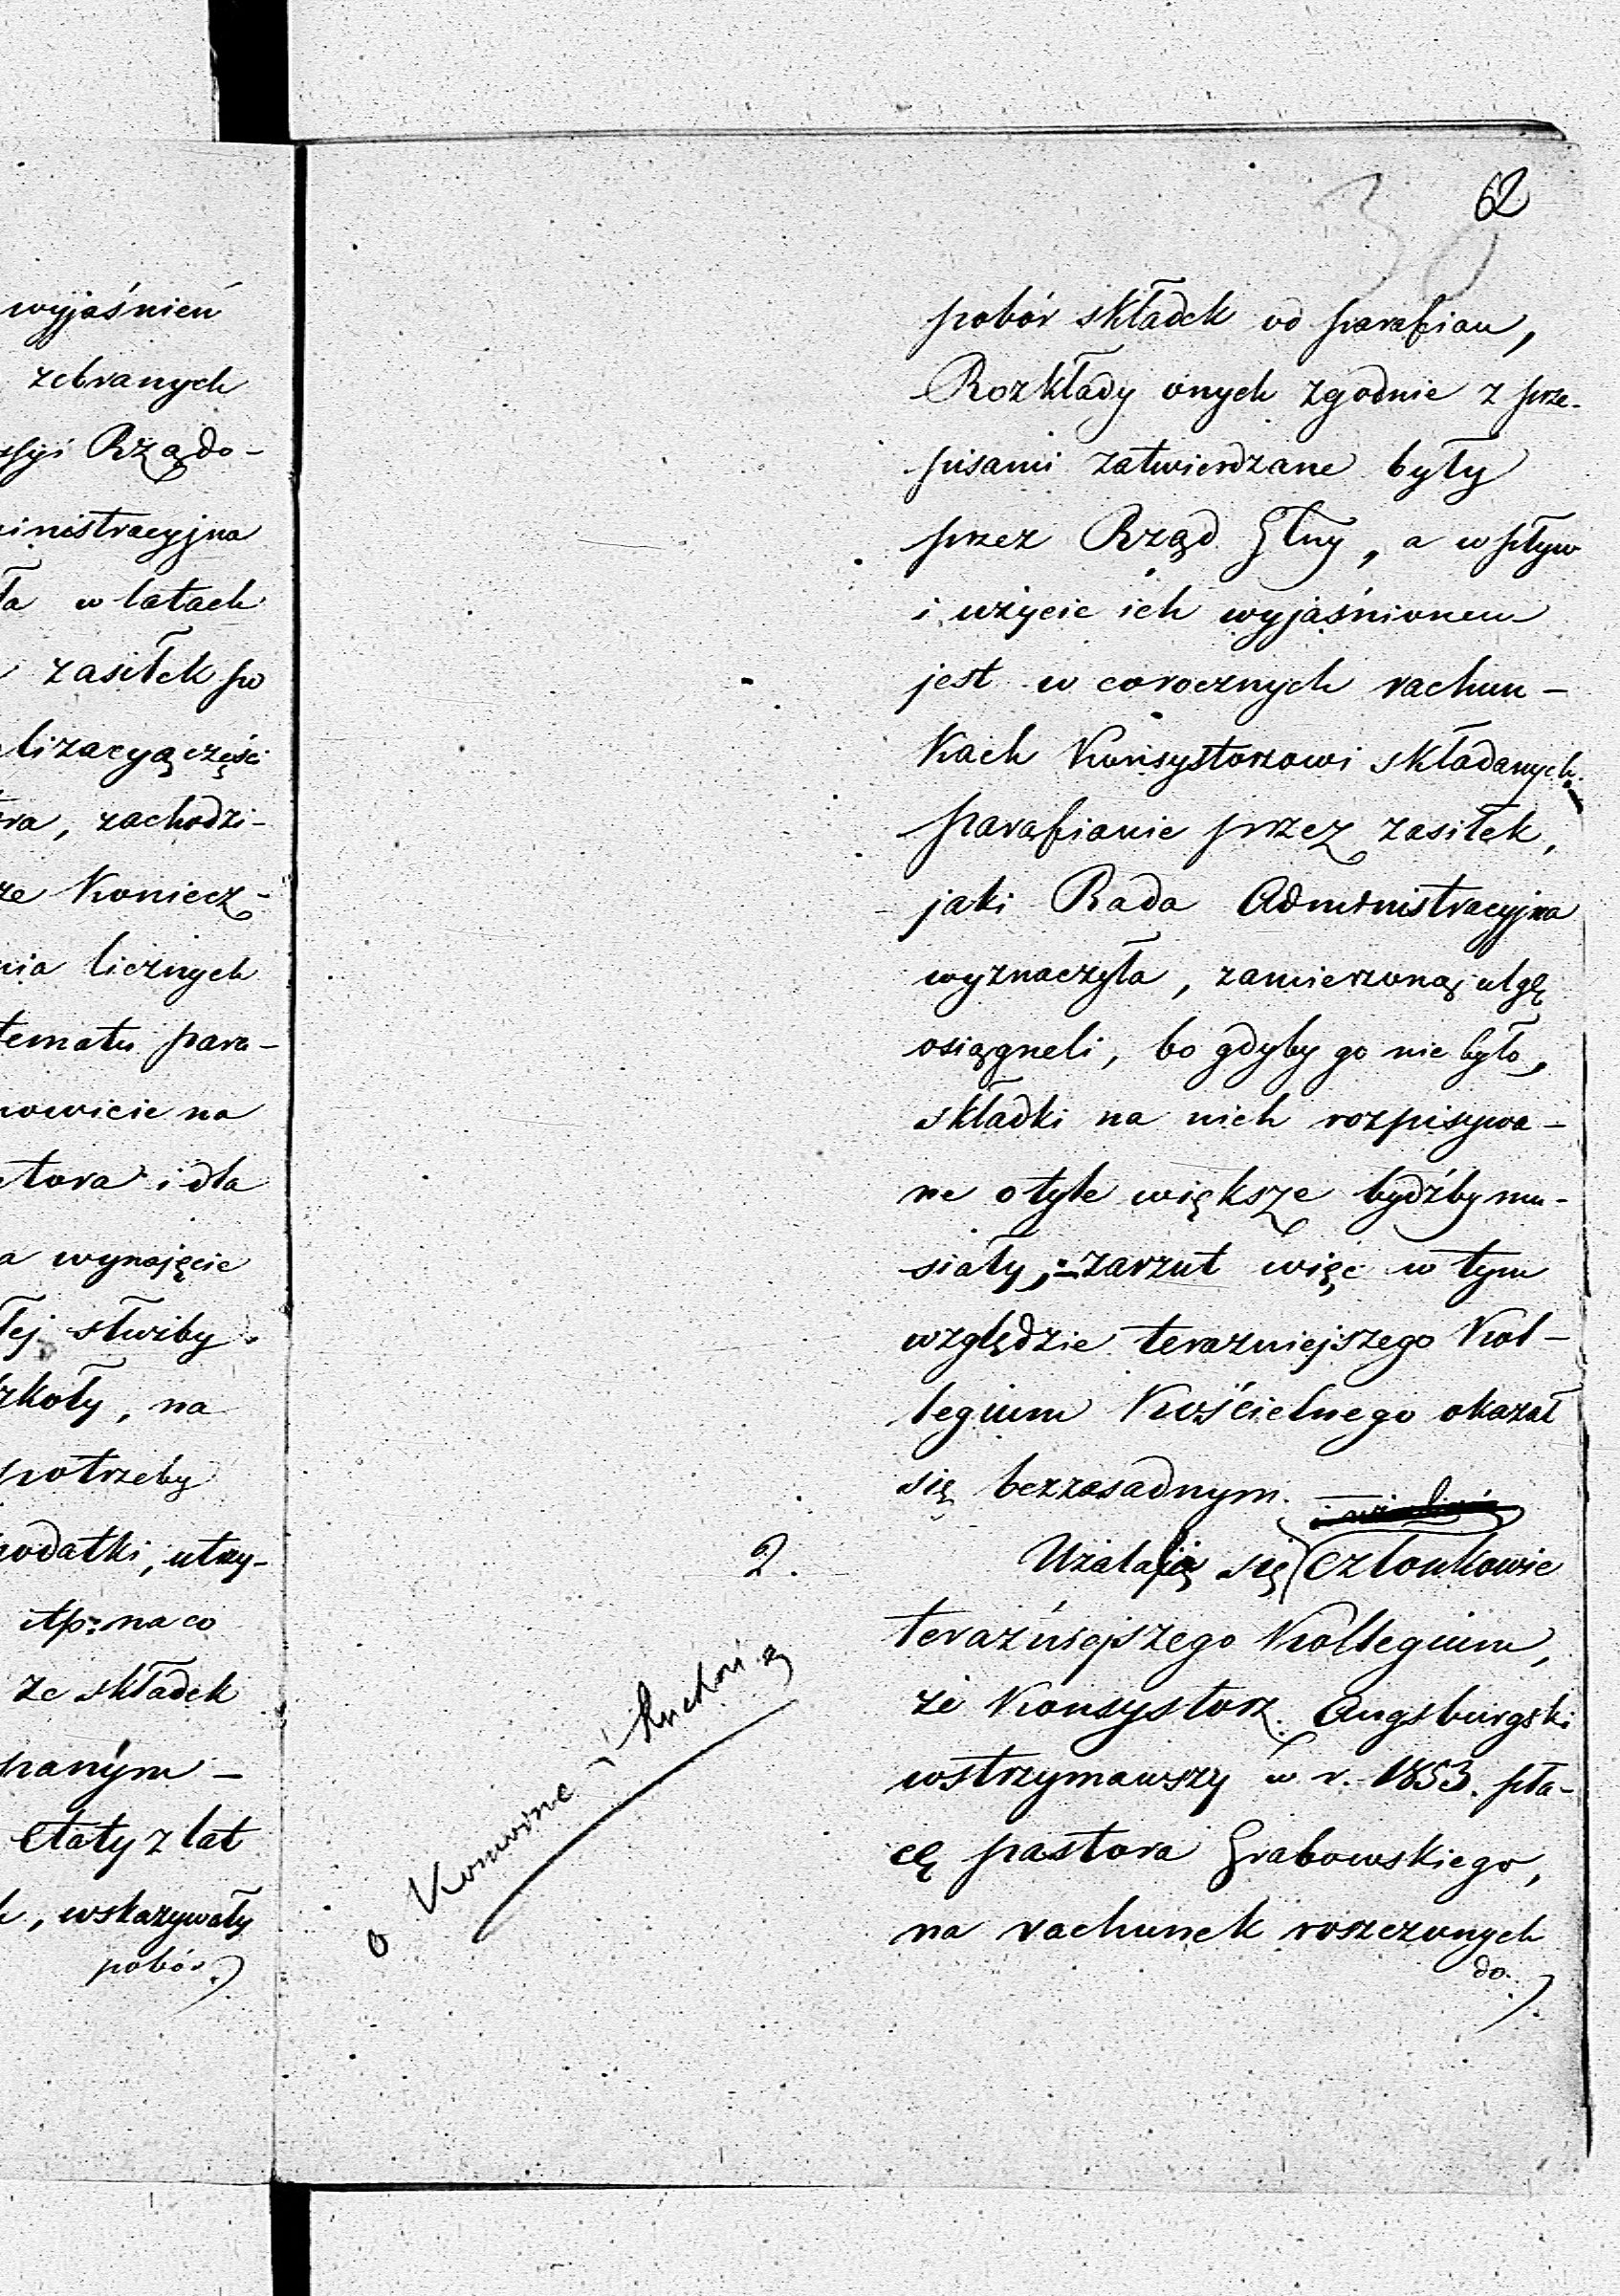 wyjaśnień
zebranych
ssyi Rządo-
ministracyjna
ła w latach
zasiłek po
lizacyą części
ra, zachodzi-
że Koniecz-
nia licznych
tematu para-
nowicie na
tora i dla
a wynajęcie
łej służby
szkoły, na
potrzeby
podatki, utrzy-
itp: na co
ze składek
panym -
Etaty z lat
h, wskazywały
pobór
62
38
pobór składek od parafian,
Rozkłady onych zgodnie z prze-
pisami zatwierdzane były
przez Rząd Głny, a wpływ
i użycie ich wyjaśnionem
jest w corocznych rachun-
kach Konsystorzowi składanych.
parafianie przez zasiłek,
jaki Rada Administracyjna
wyznaczyła, zamierzoną ulgę
osiągneli, bo gdyby go nie było,
składki na nich rozpisywa-
ne otyle większe bydźby mu-
siały,- zarzut więc w tym
względzie terazniejszego Kol-
legium Kościelnego okazał
się bezzasadnym.
2. Użalają się członkowie
teraźniejszego Kollegium,
że Konsystorz Augsburgski
wstrzymawszy w r. 1853. pła-
cę pastora Grabowskiego,
na rachunek roszczonych
do
o Komorne i Kuchnią